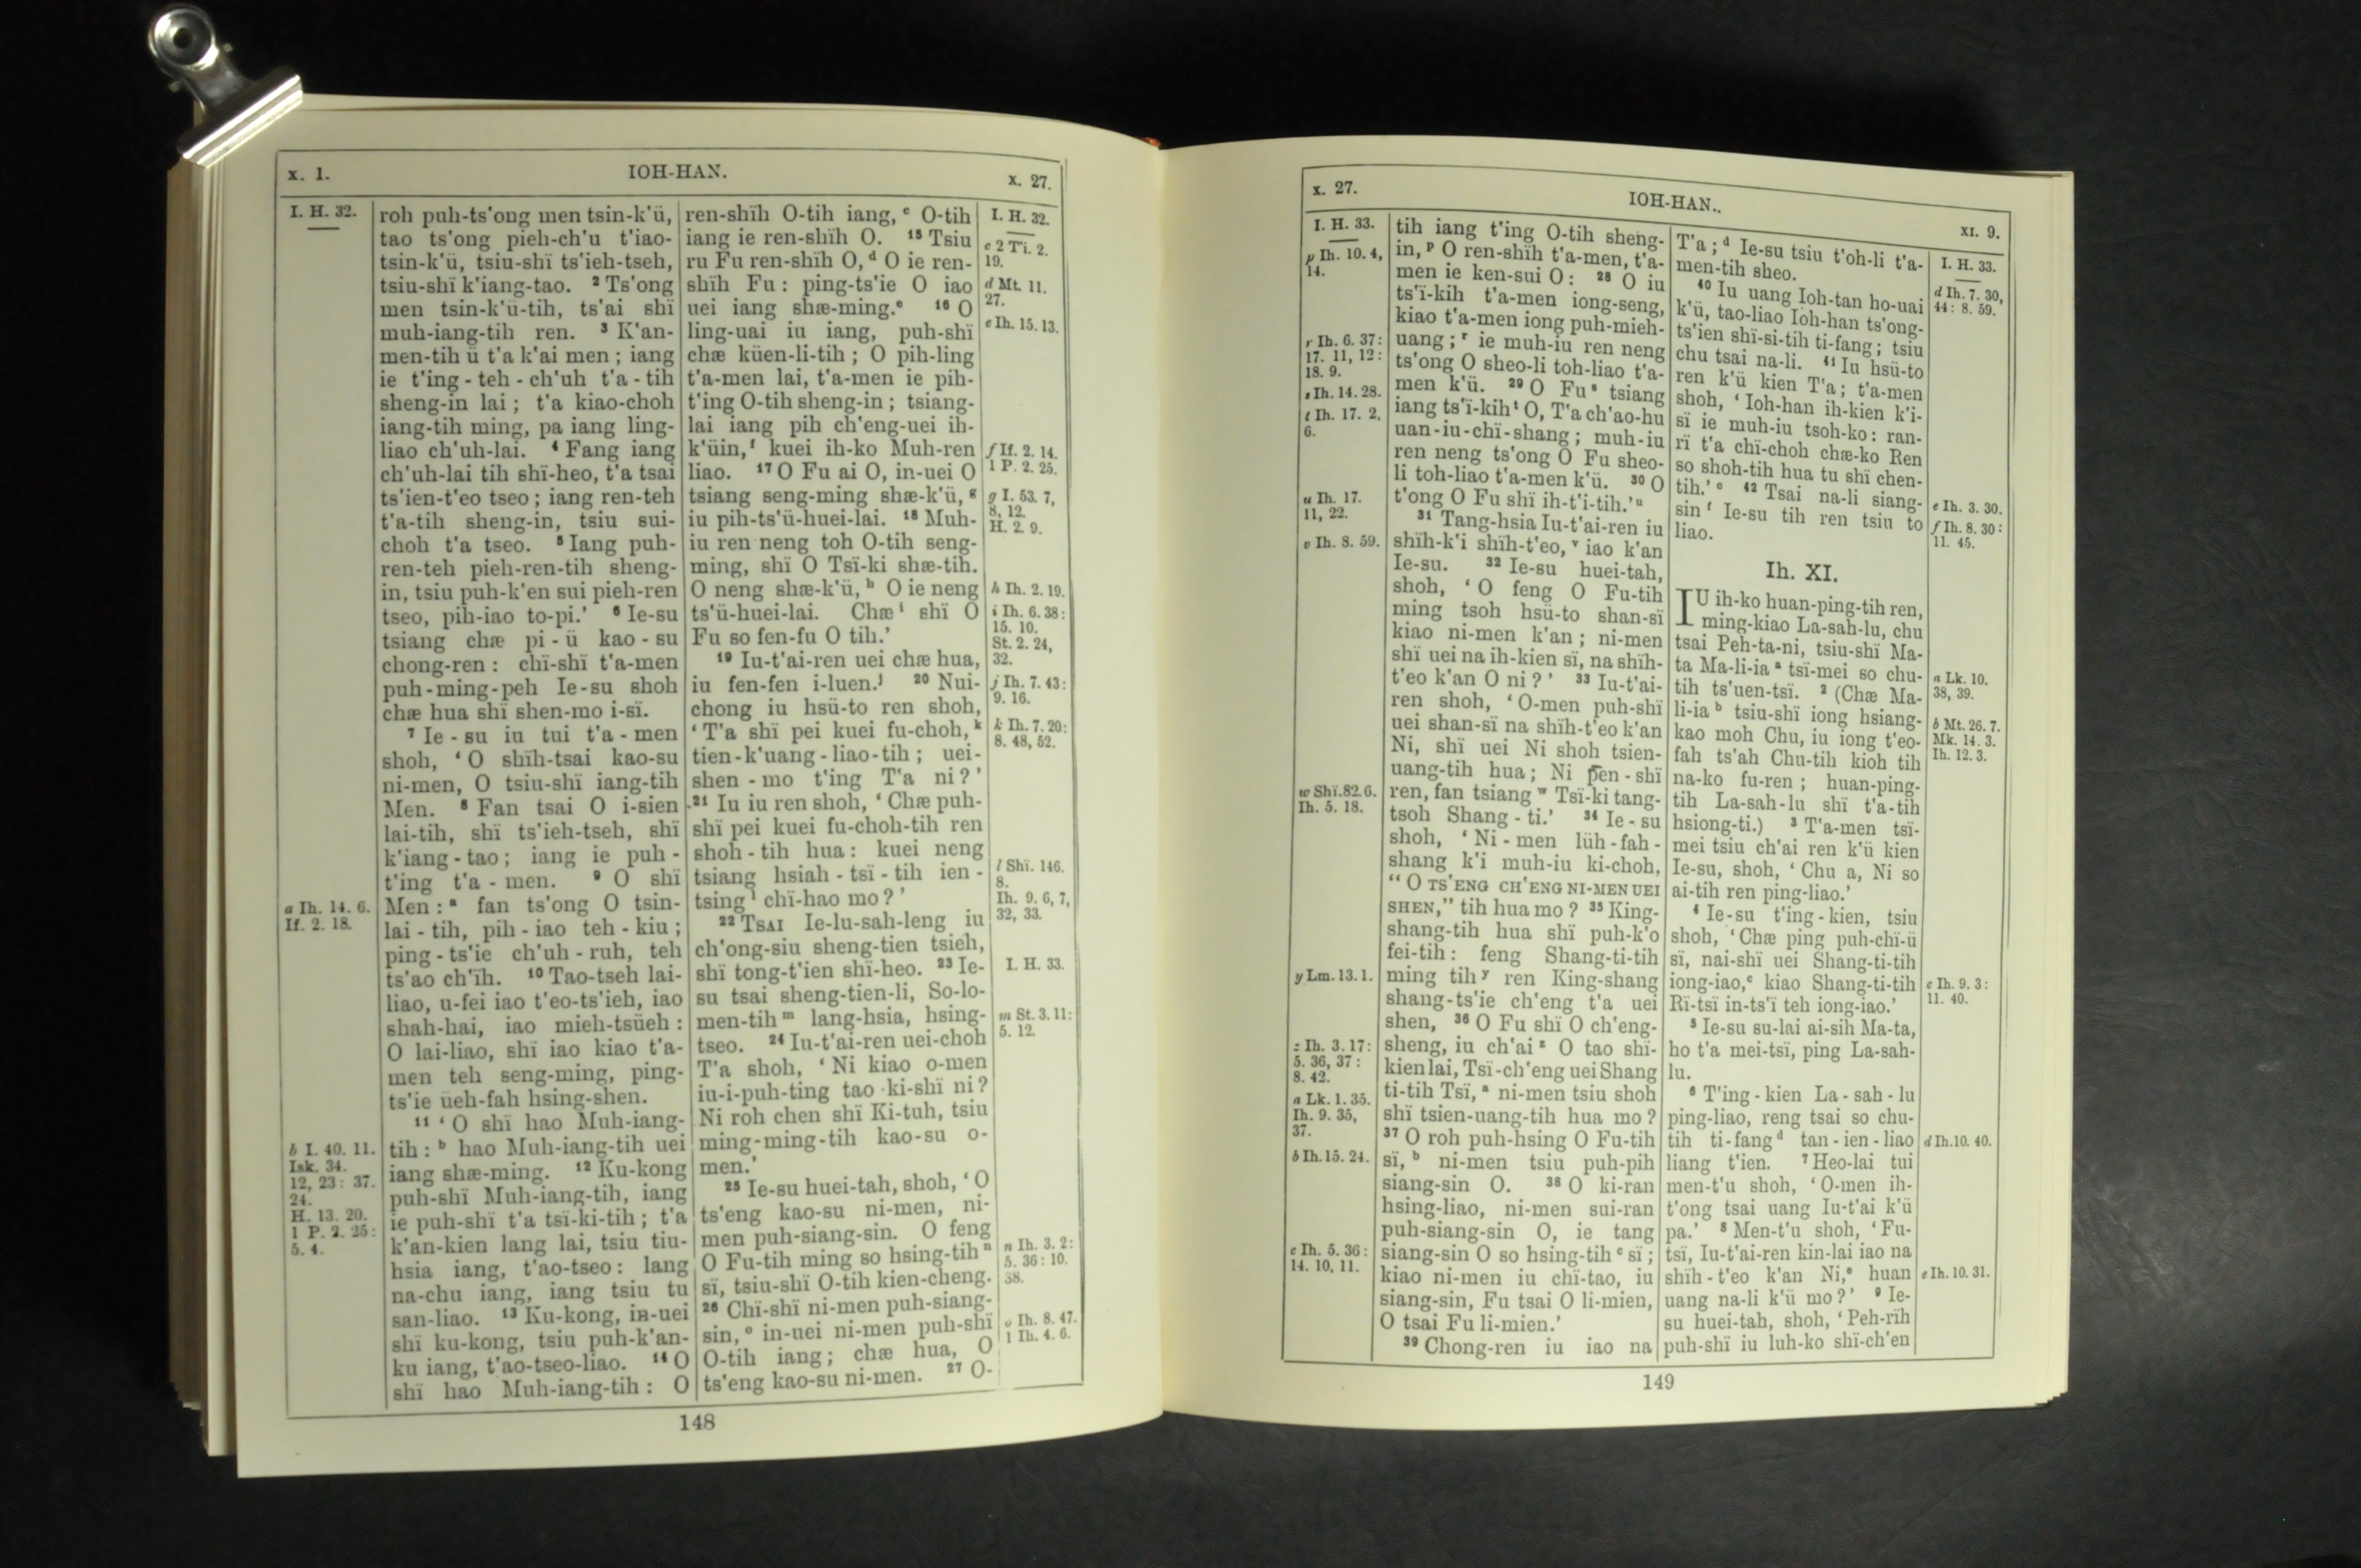 x. 1. IOH-HAN. x. 27.
I. H. 32.
a Ih. 14. 6.
If. 2. 18.
b I. 40. 11.
Isk. 34.
12, 23: 37.
24.
H. 13. 20.
1 P. 2. 25:
5. 4.
roh puh-ts'ong men tsin-k'ü,
tao ts'ong pieh-ch'u t'iao-
tsin-k'ü, tsiu-shï ts'ieh-tseh,
tsiu-shï k'iang-tao. 2 Ts'ong
men tsin-k'ü-tih, ts'ai shï
muh-iang-tih ren. 3 K'an-
men-tih ü t'a k'ai men; iang
ie t'ing-teh-ch'uh t'a-tih
sheng-in lai; t'a kiao-choh
iang-tih ming, pa iang ling-
liao ch'uh-lai. 4 Fang iang
ch'uh-lai tih shï-heo, t'a tsai
ts'ien-t'eo tseo; iang ren-teh
t'a-tih sheng-in, tsiu sui-
choh t'a tseo. 5 Iang puh-
ren-teh pieh-ren-tih sheng-
in, tsiu puh-k'en sui pieh-ren
tseo, pih-iao to-pi.' 6 Ie-su
tsiang chæ pi-ü kao-su
chong-ren: chï-shï t'a-men
puh-ming-peh Ie-su shoh
chæ hua shï shen-mo i-sï.
7 Ie-su iu tui t'a-men
shoh, 'O shïh-tsai kao-su
ni-men, O tsiu-shï iang-tih
Men. 8 Fan tsai O i-sien
lai-tih, shï ts'ieh-tseh, shï
k'iang-tao; iang ie puh-
t'ing t'a-men. 9 O shï
Men: a fan ts'ong O tsin-
lai-tih, pih-iao teh-kiu;
ping-ts'ie ch'uh-ruh, teh
ts'ao ch'ïh. 10 Tao-tseh lai-
liao, u-fei iao t'eo-ts'ieh, iao
shah-hai, iao mieh-tsüeh:
O lai-liao, shï iao kiao t'a-
men teh seng-ming, ping-
ts'ie üeh-fah hsing-shen.
11 'O shï hao Muh-iang-
tih: b hao Muh-iang-tih uei
iang shæ-ming. 12 Ku-kong
puh-shï Muh-iang-tih, iang
ie puh-shï t'a tsï-ki-tih; t'a
k'an-kien lang lai, tsiu tiu-
hsia iang, t'ao-tseo: lang
na-chu iang, iang tsiu tu
san-liao. 13 Ku-kong, in-uei
shï ku-kong, tsiu puh-k'an-
ku iang, t'ao-tseo-liao. 14 O
shï hao Muh-iang-tih: O
ren-shïh O-tih iang, c O-tih
iang ie ren-shïh O. 15 Tsiu
ru Fu ren-shïh O, d O ie ren-
shïh Fu: ping-ts'ie O iao
uei iang shæ-ming. e 16 O
ling-uai iu iang, puh-shï
chæ küen-li-tih; O pih-ling
t'a-men lai, t'a-men ie pih-
t'ing O-tih sheng-in; tsiang-
lai iang pih ch'eng-uei ih-
k'üin, f kuei ih-ko Muh-ren
liao. 17 O Fu ai O, in-uei O
tsiang seng-ming shæ-k'ü, g
iu pih-ts'ü-huei-lai. 18 Muh-
iu ren neng toh O-tih seng-
ming, shï O Tsï-ki shæ-tih.
O neng shæ-k'ü, h O ie neng
ts'ü-huei-lai. Chæ i shï O
Fu so fen-fu O tih.'
19 Iu-t'ai-ren uei chæ hua,
iu fen-fen i-luen. j 20 Nui-
chong iu hsü-to ren shoh,
'T'a shï pei kuei fu-choh, k
tien-k'uang-liao-tih; uei-
shen-mo t'ing T'a ni?'
21 Iu iu ren shoh, 'Chæ puh-
shï pei kuei fu-choh-tih ren
shoh-tih hua: kuei neng
tsiang hsiah-tsï-tih ien-
tsing l chï-hao mo?'
22 TSAI Ie-lu-sah-leng iu
ch'ong-siu sheng-tien tsieh,
shï tong-t'ien shï-heo. 23 Ie-
su tsai sheng-tien-li, So-lo-
men-tih m lang-hsia, hsing-
tseo. 24 Iu-t'ai-ren uei-choh
T'a shoh, 'Ni kiao o-men
iu-i-puh-ting tao ki-shï ni?
Ni roh chen shï Ki-tuh, tsiu
ming-ming-tih kao-su o-
men.'
25 Ie-su huei-tah, shoh, 'O
ts'eng kao-su ni-men, ni-
men puh-siang-sin. O feng
O Fu-tih ming so hsing-tih n
sï, tsiu-shï O-tih kien-cheng.
26 Chï-shï ni-men puh-siang-
sin, o in-uei ni-men puh-shï
O-tih iang; chæ hua, O
ts'eng kao-su ni-men. 27 O-
I. H. 32.
c 2 Ti. 2.
19.
d Mt. 11.
27.
e Ih. 15. 13.
f If. 2. 14.
1 P. 2. 25.
g I. 53. 7,
8, 12.
H. 2. 9.
h Ih. 2. 19.
i Ih. 6. 38:
15. 10.
St. 2. 24,
32.
j Ih. 7. 43:
9. 16.
k Ih. 7. 20:
8. 48, 52.
l Shï. 146.
8.
Ih. 9. 6, 7,
32, 33.
I. H. 33.
m St. 3. 11:
5. 12.
n Ih. 3. 2:
5. 36: 10.
38.
o Ih. 8. 47.
1 Ih. 4. 6.
148
x. 27. IOH-HAN. XI. 9.
I. H. 33.
p Ih. 10. 4,
14.
r Ih. 6. 37:
17. 11, 12:
18. 9.
s Ih. 14. 28.
t Ih. 17. 2,
6.
u Ih. 17.
11, 22.
v Ih. 8. 59.
w Shï. 82. 6.
Ih. 5. 18.
y Lm. 13. 1.
z Ih. 3. 17:
5. 36, 37:
8. 42.
a Lk. 1. 35.
Ih. 9. 35,
37.
b Ih. 15. 24.
c Ih. 5. 36:
14. 10, 11.
tih iang t'ing O-tih sheng-
in, p O ren-shïh t'a-men, t'a-
men ie ken-sui O: 28 O iu
ts'ï-kih t'a-men iong-seng,
kiao t'a-men iong puh-mieh-
uang; r ie muh-iu ren neng
ts'ong O sheo-li toh-liao t'a-
men k'ü. 29 O Fu s tsiang
iang ts'ï-kih t O, T'a ch'ao-hu
uan-iu-chï-shang; muh-iu
ren neng ts'ong O Fu sheo-
li toh-liao t'a-men k'ü. 30 O
t'ong O Fu shï ih-t'i-tih.' u
31 Tang-hsia Iu-t'ai-ren iu
shïh-k'i shïh-t'eo, v iao k'an
Ie-su. 32 Ie-su huei-tah,
shoh, 'O feng O Fu-tih
ming tsoh hsü-to shan-sï
kiao ni-men k'an; ni-men
shï uei na ih-kien sï, na shïh-
t'eo k'an O ni?' 33 Iu-t'ai-
ren shoh, 'O-men puh-shï
uei shan-sï na shïh-t'eo k'an
Ni, shï uei Ni shoh tsien-
uang-tih hua; Ni pen-shï
ren, fan tsiang w Tsï-ki tang-
tsoh Shang-ti.' 34 Ie-su
shoh, 'Ni-men lüh-fah-
shang k'i muh-iu ki-choh,
“O TS'ENG CH'ENG NI-MEN UEI
SHEN,” tih hua mo? 35 King-
shang-tih hua shï puh-k'o
fei-tih: feng Shang-ti-tih
ming tih y ren King-shang
shang-ts'ie ch'eng t'a uei
shen, 36 O Fu shï O ch'eng-
sheng, iu ch'ai z O tao shï-
kien lai, Tsï-ch'eng uei Shang
ti-tih Tsï, a ni-men tsiu shoh
shï tsien-uang-tih hua mo?
37 O roh puh-hsing O Fu-tih
sï, b ni-men tsiu puh-pih
siang-sin O. 38 O ki-ran
hsing-liao, ni-men sui-ran
puh-siang-sin O, ie tang
siang-sin O so hsing-tih c sï;
kiao ni-men iu chï-tao, iu
siang-sin, Fu tsai O li-mien,
O tsai Fu li-mien.'
39 Chong-ren iu iao na
T'a; d Ie-su tsiu t'oh-li t'a-
men-tih sheo.
40 Iu uang Ioh-tan ho-uai
k'ü, tao-liao Ioh-han ts'ong-
ts'ien shï-si-tih ti-fang; tsiu
chu tsai na-li. 41 Iu hsü-to
ren k'ü kien T'a; t'a-men
shoh, 'Ioh-han ih-kien k'i-
sï ie muh-iu tsoh-ko: ran-
rï t'a chï-choh chæ-ko Ren
so shoh-tih hua tu shï chen-
tih.' e 42 Tsai na-li siang-
sin f Ie-su tih ren tsiu to
liao.
Ih. XI.
IU ih-ko huan-ping-tih ren,
ming-kiao La-sah-lu, chu
tsai Peh-ta-ni, tsiu-shï Ma-
ta Ma-li-ia a tsï-mei so chu-
tih ts'uen-tsï. 2 (Chæ Ma-
li-ia b tsiu-shï iong hsiang-
kao moh Chu, iu iong t'eo-
fah ts'ah Chu-tih kioh tih
na-ko fu-ren; huan-ping-
tih La-sah-lu shï t'a-tih
hsiong-ti.) 3 T'a-men tsï-
mei tsiu ch'ai ren k'ü kien
Ie-su, shoh, 'Chu a, Ni so
ai-tih ren ping-liao.'
4 Ie-su t'ing-kien, tsiu
shoh, 'Chæ ping puh-chï-ü
sï, nai-shï uei Shang-ti-tih
iong-iao, c kiao Shang-ti-tih
Rï-tsï in-ts'ï teh iong-iao.'
5 Ie-su su-lai ai-sih Ma-ta,
ho t'a mei-tsï, ping La-sah-
lu.
6 T'ing-kien La-sah-lu
ping-liao, reng tsai so chu-
tih ti-fang d tan-ien-liao
liang t'ien. 7 Heo-lai tui
men-t'u shoh, 'O-men ih-
t'ong tsai uang Iu-t'ai k'ü
pa.' 8 Men-t'u shoh, 'Fu-
tsï, Iu-t'ai-ren kin-lai iao na
shïh-t'eo k'an Ni, e huan
uang na-li k'ü mo?' 9 Ie-
su huei-tah, shoh, 'Peh-rïh
puh-shï iu luh-ko shï-ch'en
I. H. 33.
d Ih. 7. 30,
44: 8. 59.
e Ih. 3. 30.
f Ih. 8. 30:
11. 45.
a Lk. 10.
38, 39.
b Mt. 26. 7.
Mk. 14. 3.
Ih. 12. 3.
c Ih. 9. 3:
11. 40.
d Ih. 10. 40.
e Ih. 10. 31.
149